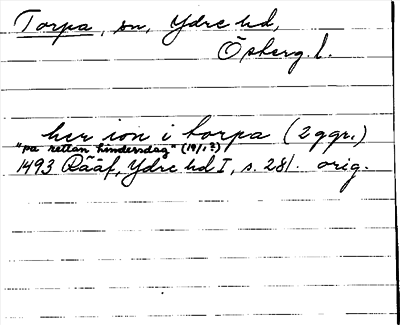 Torpa, sn, Ydre hd,
Östergl.
her ion i torpa (2 ggr.)
"pa rettan hindersdag" (19/1?)
1493 Rääf, Ydre hd I, s. 281. orig.